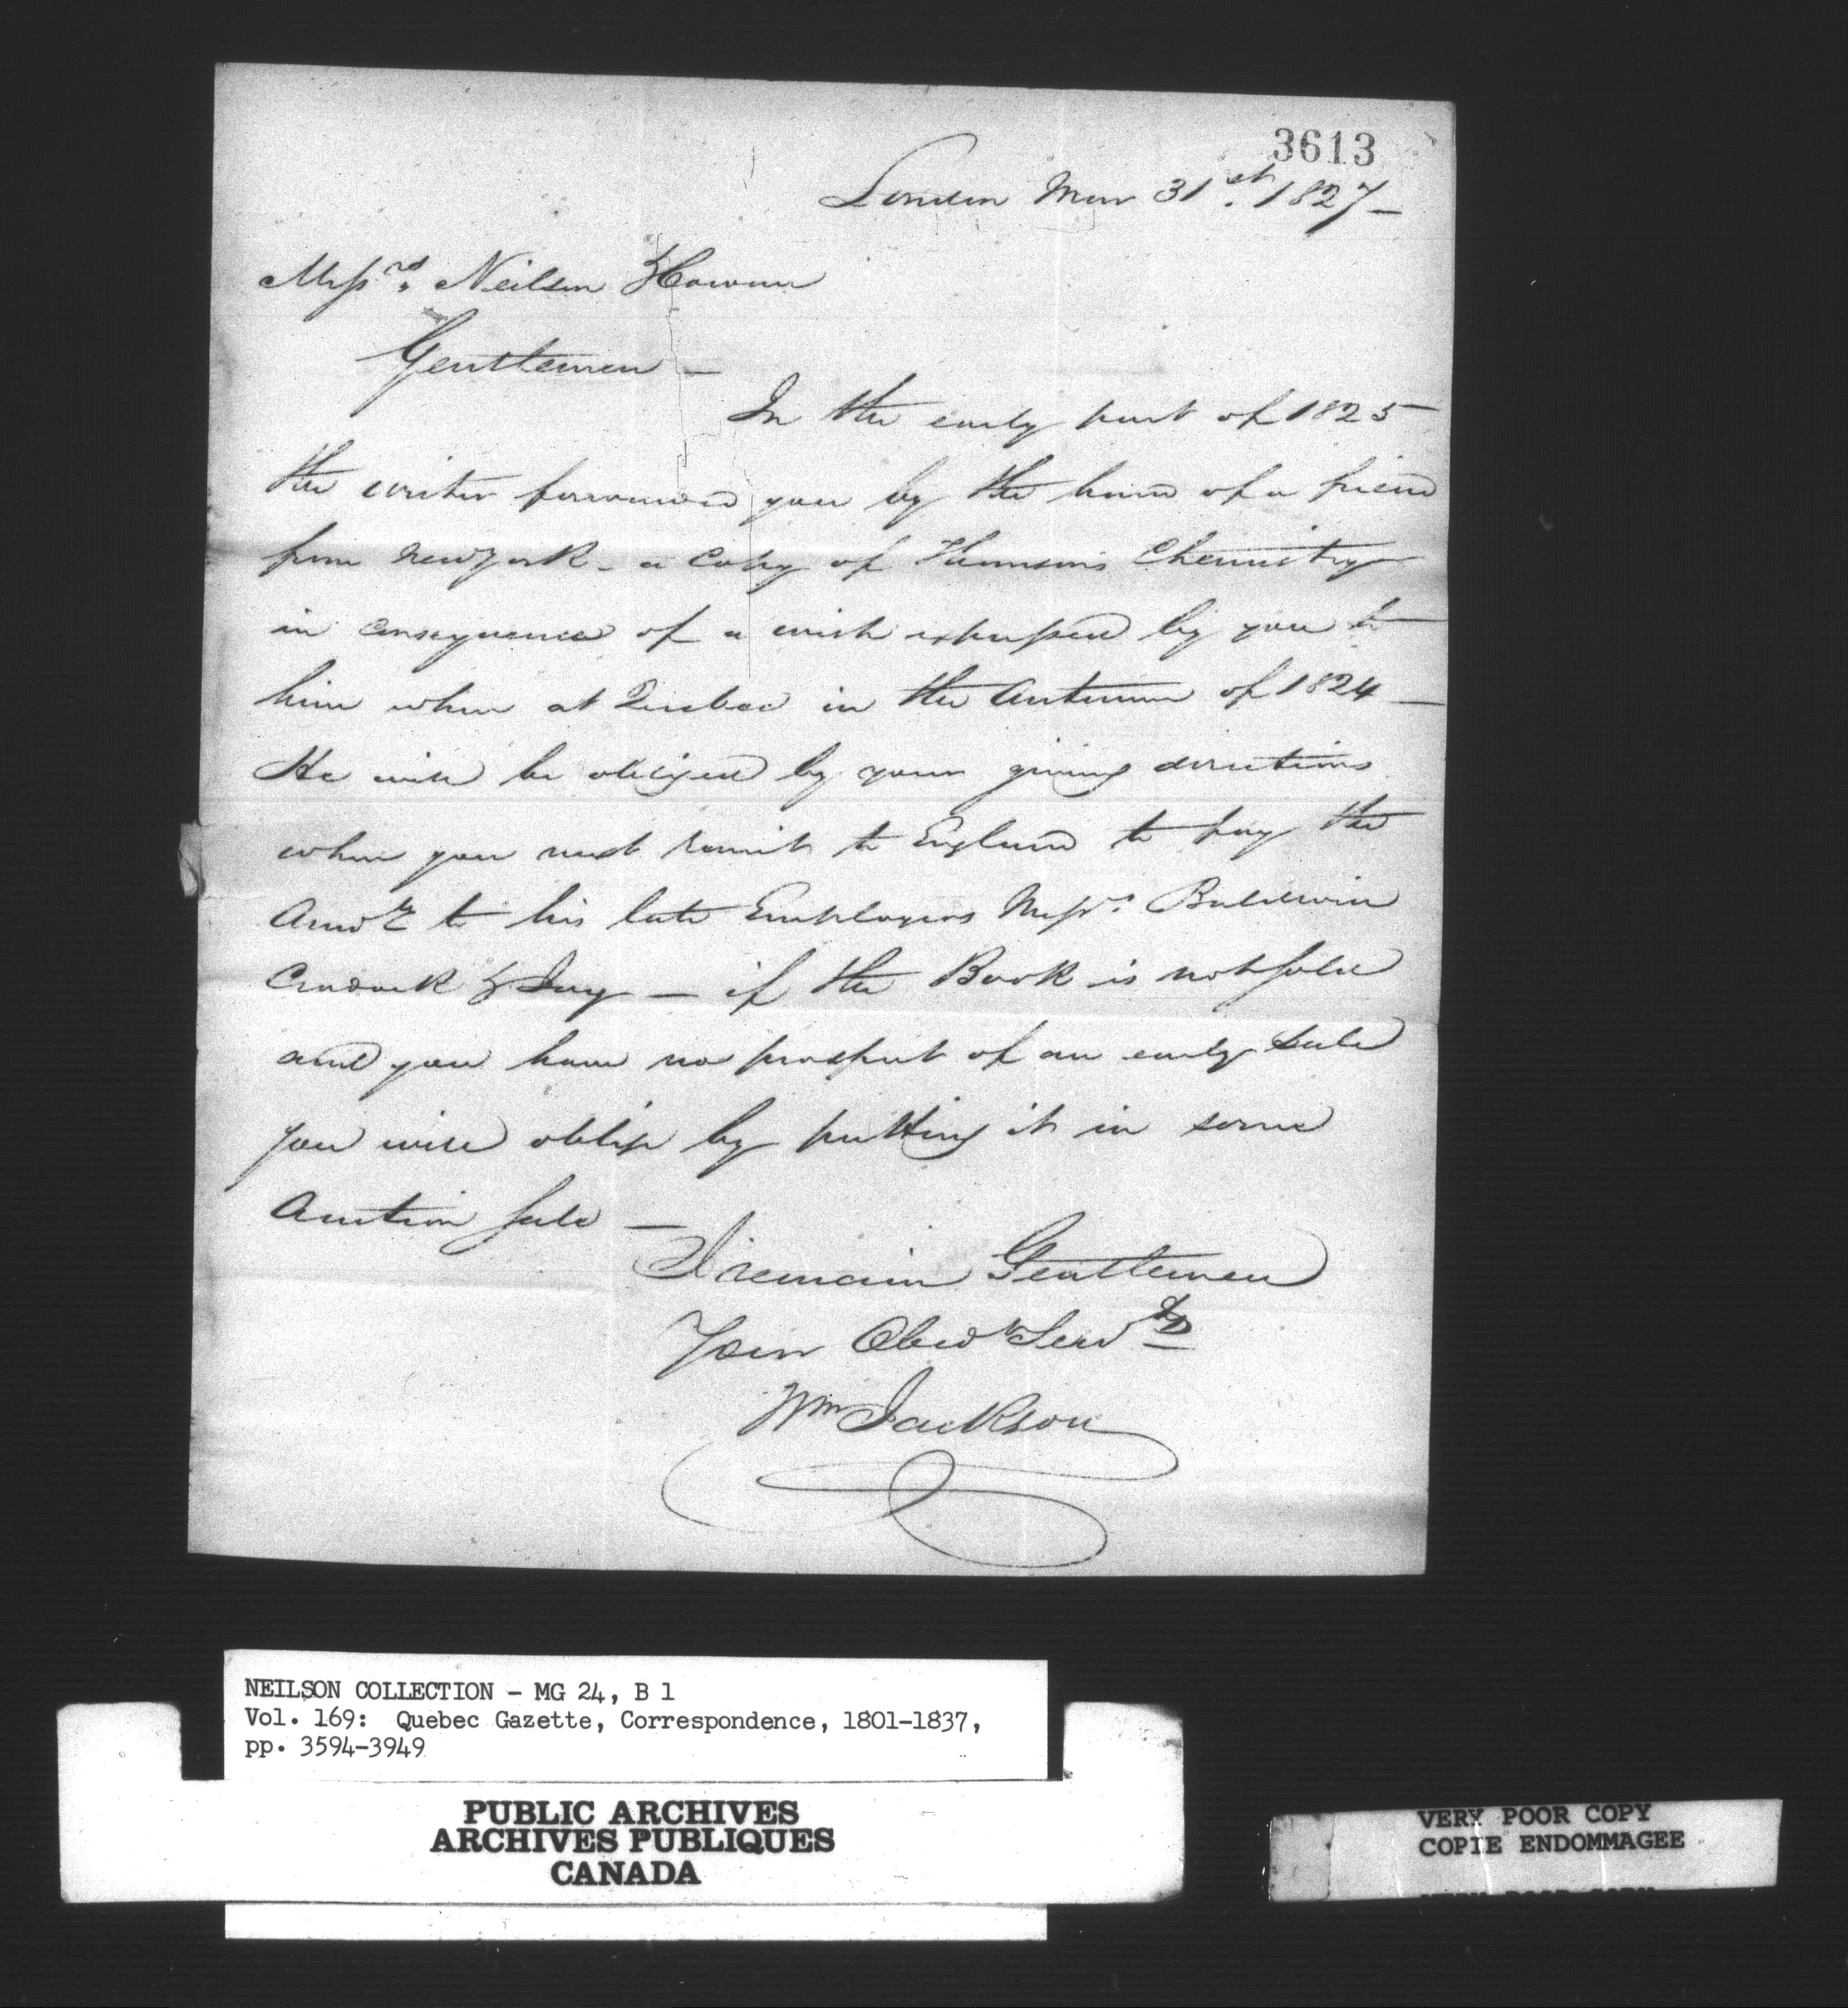 3613
London Mar 31st. 1827 —
Messrs. Neilson & Cowan
Gentlemen —
In the early part of 1825
the writer forwarded you by the hand of a friend
from New York - a Copy of Thomson's Chemistry
in consequence of a wish expressed by you to
him when at Quebec in the Autumn of 1824 —
He will be obliged by your giving directions
when you next remit to England to pay the
Amot to his late Employers Messrs. Baldwin
Cradock & Joy — if the Book is not sold
and you have no prospect of an early sale
you will oblige by putting it in some
Auction sale —
I remain Gentlemen
Your Obedt Servt
Wm Jackson
NEILSON COLLECTION - MG 24, B 1
Vol. 169: Quebec Gazette, Correspondence, 1801-1837,
pp. 3594-3949
PUBLIC ARCHIVES
ARCHIVES PUBLIQUES
CANADA
VERY POOR COPY
COPIE ENDOMMAGEE
VERY POOR COPY